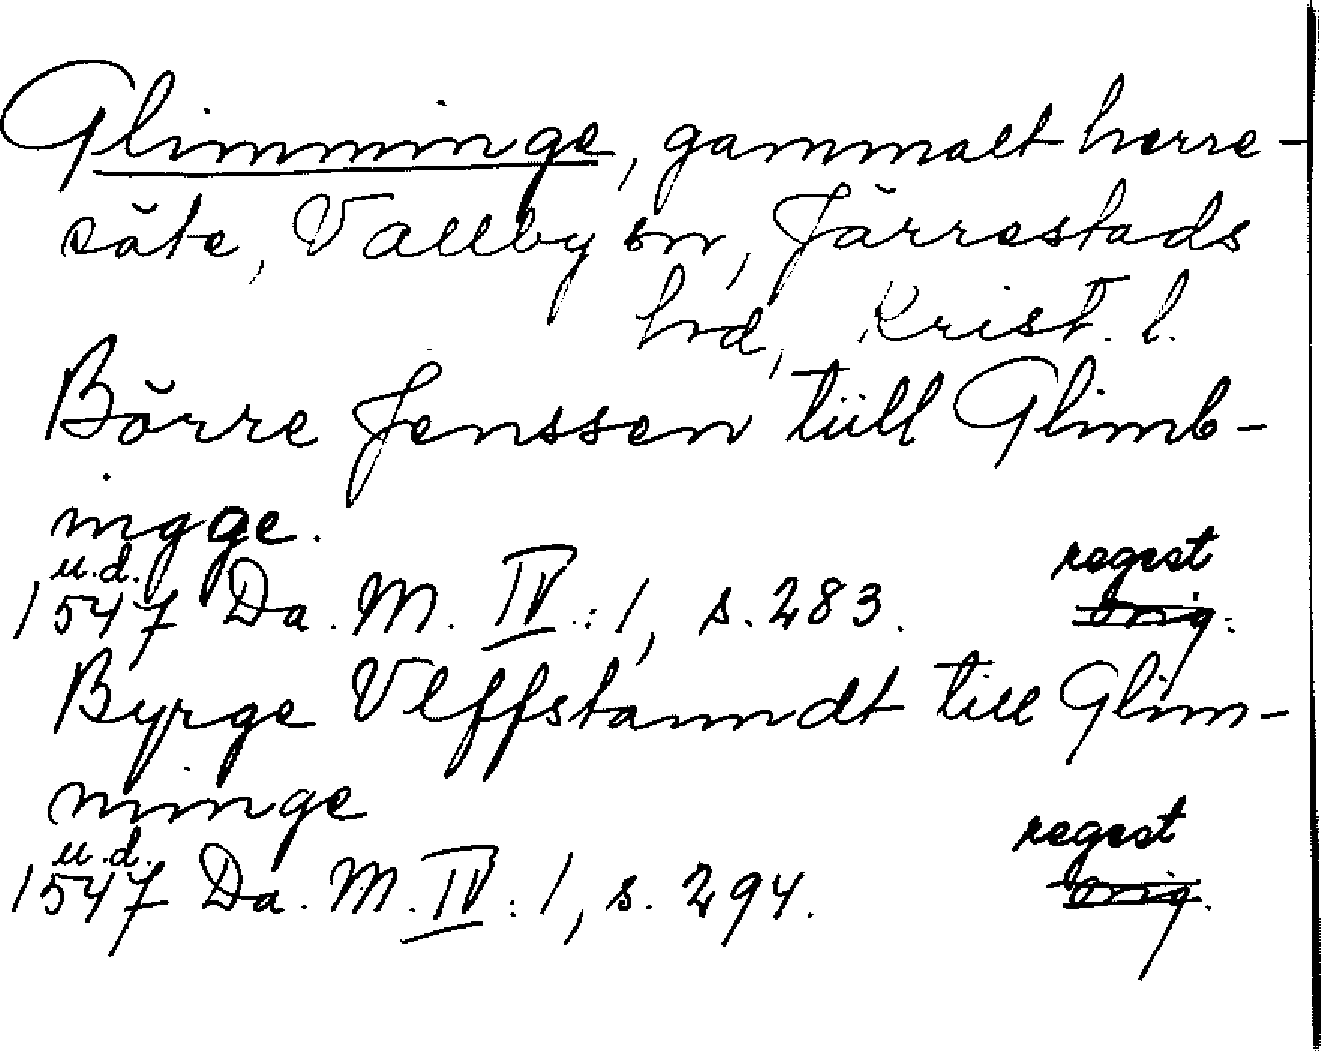 Glimminge, gammalt herre-
säte, Vallby sn, Järrestads
hrd, Krist. l.
Börre Jenssen tiill Glimb-
ingge.
u.d. regest
1547 Da. M. IV:1, s. 283. orig.
Byrge Vlffstanndt till Glim-
minge
u.d. regest
1547 Da. M. IV:1, s. 294. orig.